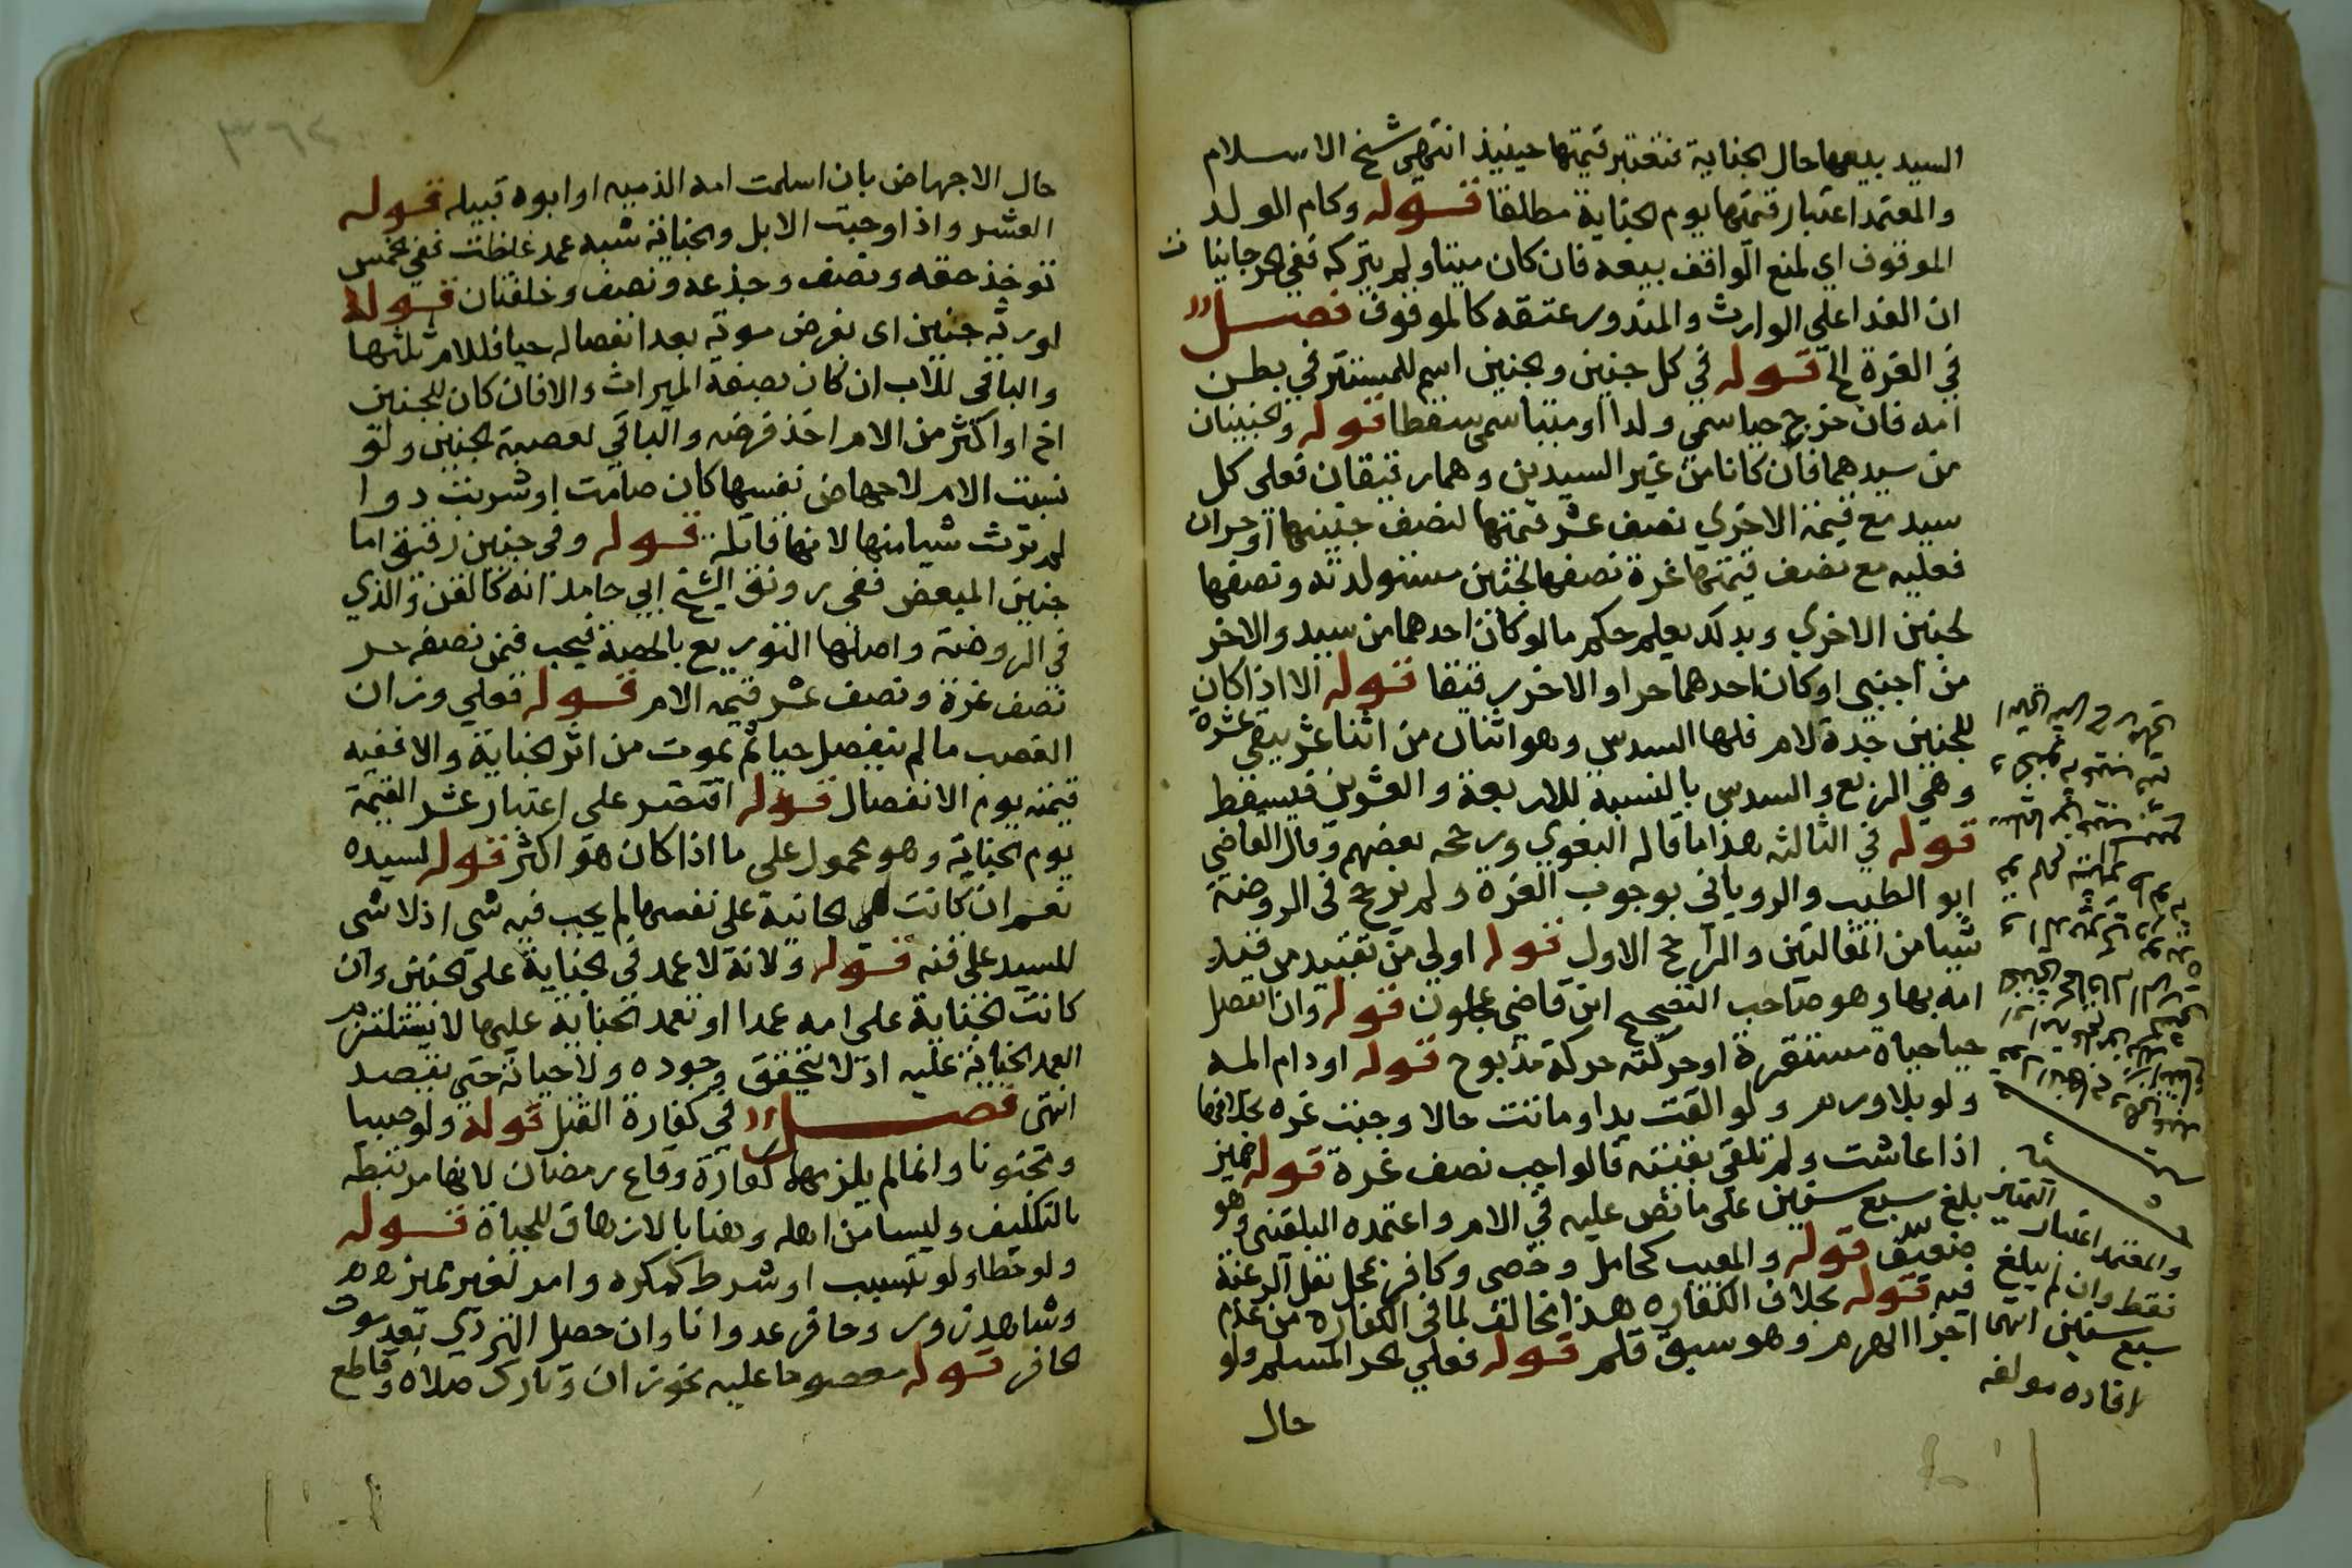 السيد بيعها حال الجناية فتعتبر قيمتها حينيذ انتهى شيخ الاسلام
والمعتمد اعتبار قيمتها يوم الجناية مطلقا قوله وكام الولد
الموقوف اي لمنع الواقف بيعه فان كان ميتا ولم يتركه ففي
ان الفدا على الوارث والمنذور عتقه كالموقوف فصل
في الغرة الخ قوله في كل جنين والجنين اسم للمستتر في بطن
امه فان خرج حيا سمي ولدا او ميتا سمي سقطا قوله والجنينان
من سيدهما فان كانا من غير السيدين وهما رقيقان فعلى كل
سيد مع قيمة الاخري نصف عشر قيمتها لنصف جنينها او حران
فعليه مع نصف قيمتها غرة نصفها لجنين مستولدته ونصفها
لجنين الاخري وبذلك يعلم حكم ما لو كان احدهما من سيد والاخر
من اجنبي او كان احدهما حرا والاخر رقيقا قوله الا اذا كان
للجنين جدة لام فلها السدس وهو اثنان من اثنا عشر يبقى عشرة
وهي الربع والسدس بالنسبة للاربعة والعشرين فيسقط
قوله في الثالثه هذا ما قاله البغوي ورجحه بعضهم وقال القاضي
ابو الطيب والروياني بوجوب الغرة ولم يرجح في الروضة
شيا من المقالتين والراجح الاول قوله اولي من تقييد من قيد
امه بها وهو صاحب التصحيح ابن قاضي عجلون قوله وان انفصل
حيا حياة مستقرة او حركته حركة مذبوح قوله او دام المه
ولو بلا ورم ولو القت يدا وماتت حالا وجبت غره بخلافها
اذا عاشت ولم تلقى بقيته فالواجب نصف غرة قوله مميز
بلغ سبع سنين على ما نص عليه في الام واعتمده البلقيني وهو
ضعيف قوله والمعيب كحامل وخصي وكافر بمحل تقل الرغبة
فيه قوله بخلاف الكفاره هذا مخالف لما في الكفارة من عدم
اجزا الهرم وهو سبق قلم قوله فعلي الحر المسلم ولو
حال
والمعتمد اعتبار التمييز
فقط وان لم يبلغ
سبع سنين انتها
افاده مولفه
حال الاجهاض بان اسلمت امه الذميه او ابوه قبيله قوله
العشر واذا وجبت الابل والجناية شبه عمد غلظت ففي الخمس
توخذ حقه ونصف وجذعه ونصف وخلفتان قوله
لورثه جنين اى بفرض موته بعد انفصاله حيا فللام ثلثها
والباقى للاب ان كان بصفة الميراث والا فان كان للجنين
اخ او اكثر من الام اخذ فرضه والباقي لعصبة الجنين ولو
نسبت الام لاجهاض نفسها كان صامت او شربت دوا
لم ترث شيا منها لانها قاتلة قوله وفي جنين رقيق اما
جنين المبعض ففي رونق الشيخ ابي حامد انه كالقن والذي
فى الروضة واصلها التوزيع بالحصة فيجب فيمن نصفه حر
نصف غرة ونصف عشر قيمه الام قوله فعلي وزان
الغصب ما لم ينفصل حيا ثم يموت من اثر الجناية والا ففيه
قيمته يوم الانفصال قوله اقتصر على اعتبار عشر القيمة
يوم الجناية وهو محمول على ما اذا كان هو اكثر قوله لسيده
نعم ان كانت هى الجانية على نفسها لم يجب فيه شي اذ لا شى
للسيد على قنه قوله ولانه لا عمد في الجناية على الجنين وان
كانت الجناية على امه عمدا او تعمد الجناية عليها لا يستلزم
العمد الجناية عليه اذ لا يتحقق وجوده ولا حياته حتى يقصد
انتهى فصل في كفارة القتل قوله ولو صبيا
ومجنونا وانما لم يلزمهما كفارة وقاع رمضان لانها مرتبطه
بالتكليف وليسا من اهله وهنا بالازهاق للحياة قوله
ولو خطا ولو بتسبب او شرط كمكره وامر لغير مميز
وشاهد زور وحافر عدوانا وان حصل التردي بعد موت
الحافر قوله معصوما عليه نحو زان وتارك صلاه وقاطع